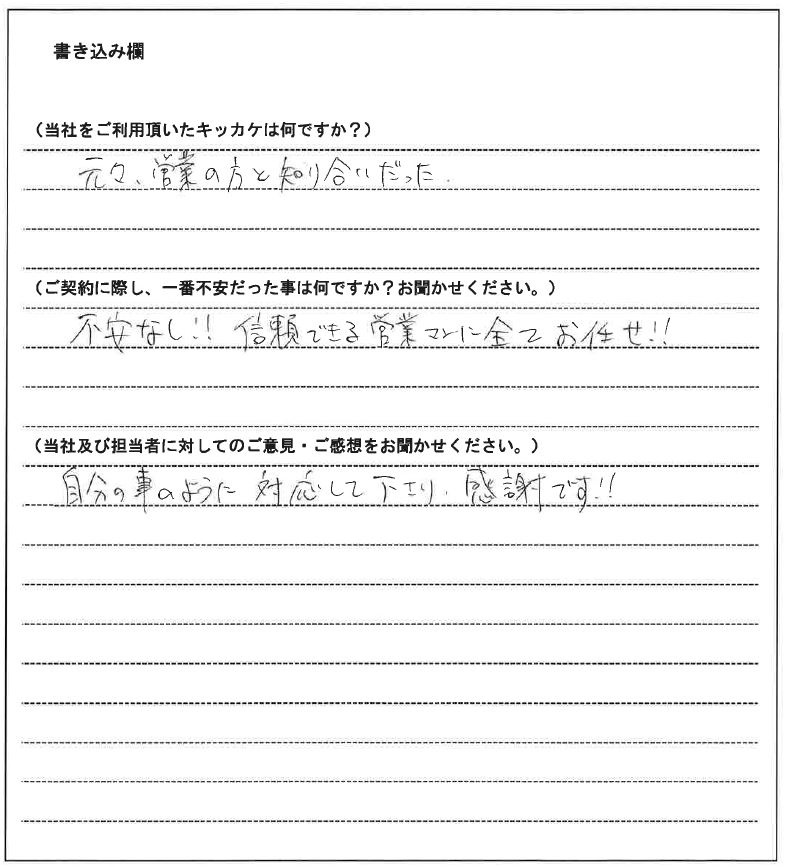 書き込み欄
（当社をご利用頂いたキッカケは何ですか？）
元々、営業の方と知り合いだった.
（ご契約に際し、一番不安だった事は何ですか？お聞かせください。）
不安なし!! 信頼できる営業マンに全てお任せ!!
（当社及び担当者に対してのご意見・ご感想をお聞かせください。）
自分の事のように対応して下さり、感謝です!!